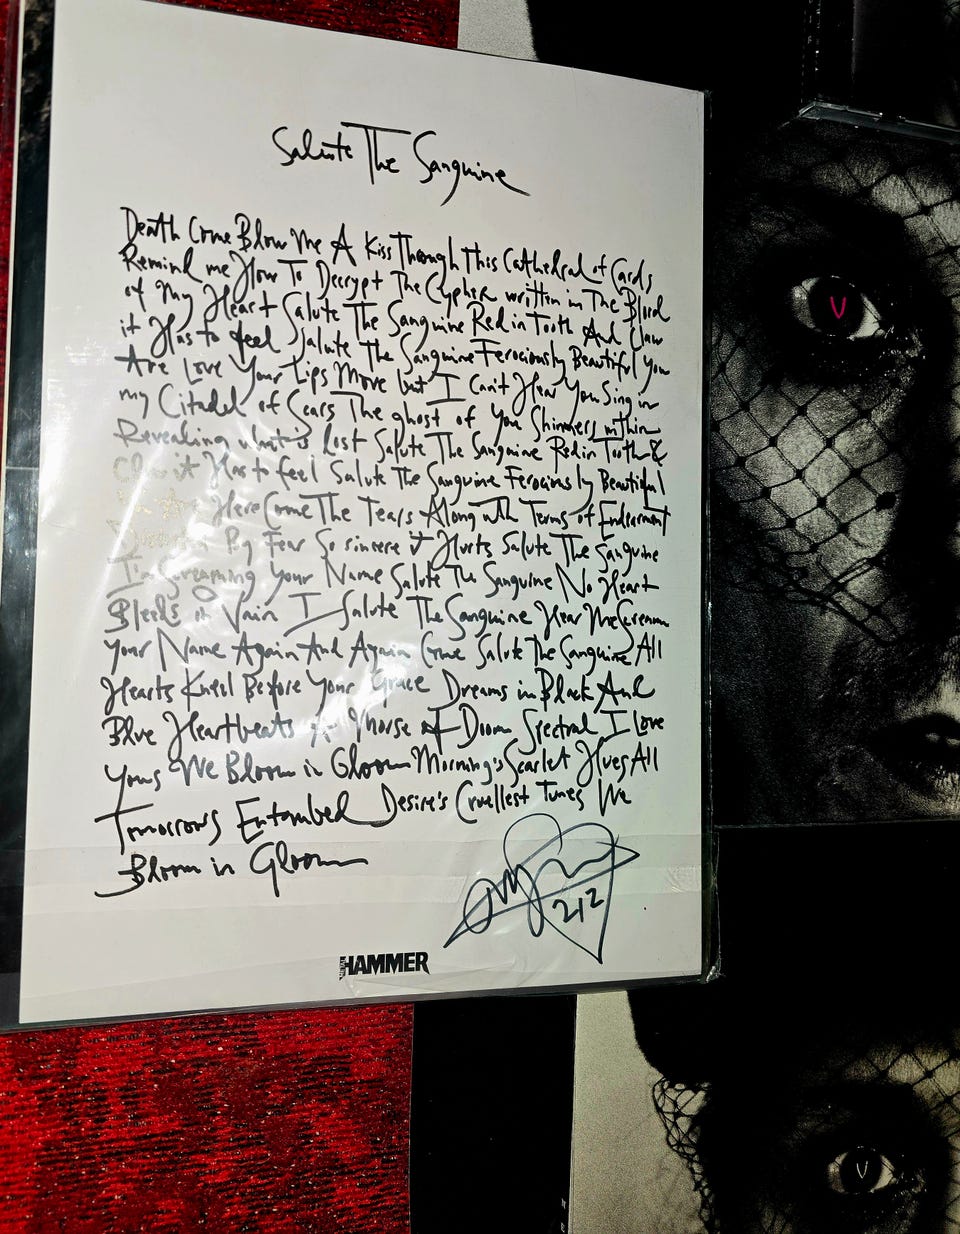 Salute The Sanguine
Death Come Blow Me A Kiss Through This Cathedral of Cards
Remind me How To Decrypt The Cypher written in The Blood
of My Heart Salute The Sanguine Red in Tooth And Claw
it Has to feel Salute The Sanguine Ferociously Beautiful You
Are Love Your Lips Move but I Can't Hear You Sing in
my Citadel of Scars The ghost of You Shimmers within
Revealing what is lost Salute The Sanguine Red in Tooth &
Claw it Has to feel Salute The Sanguine Ferociously Beautiful
You Are Here Come The Tears Along with Terms of Endearment
By Fear So sincere it Hurts Salute The Sanguine
I'm Screaming Your Name Salute The Sanguine No Heart
Bleeds in Vain I Salute The Sanguine Hear Me Scream
Your Name Again And Again Salute The Sanguine All
Hearts Kneel Before Your Grace Dreams in Black And
Blue Heartbeats in Morse of Doom Spectral I Love
Yous We Bloom in Gloom Morning's Scarlet Hues All
Tomorrows Entombed Desire's Cruellest Tunes We
Bloom in Gloom
212
METAL HAMMER
V
V